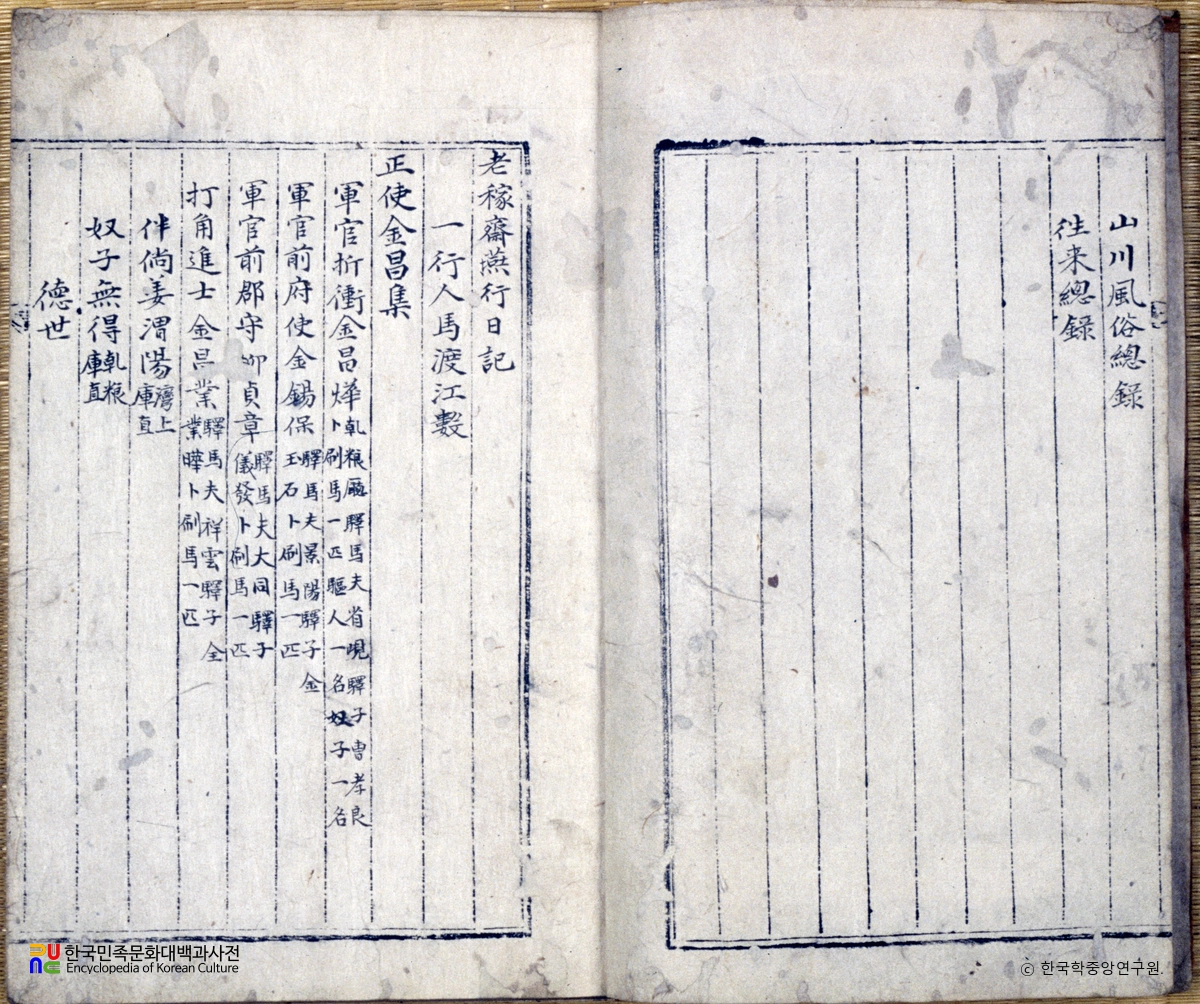 山川風俗總錄
徃来總錄
老稼齋燕行日記
一行人馬渡江數
正使金昌集
軍官折衝金昌燁 乹粮廳驛馬夫省峴驛子曺孝良
卜刷馬一匹驅人一名奴子一名
軍官前府使金錫保 驛馬夫景陽驛子金
玉石卜刷馬一匹
軍官前郡守柳貞章 驛馬夫大同驛子
儀發卜刷馬一匹
打角進士金昌業 驛馬夫祥雲驛子全
業曄卜刷馬一匹
伴倘姜渭陽 灣上
庫直
奴子無得 乹粮
庫直
德世
한국민족문화대백과사전
Encyclopedia of Korean Culture
© 한국학중앙연구원.